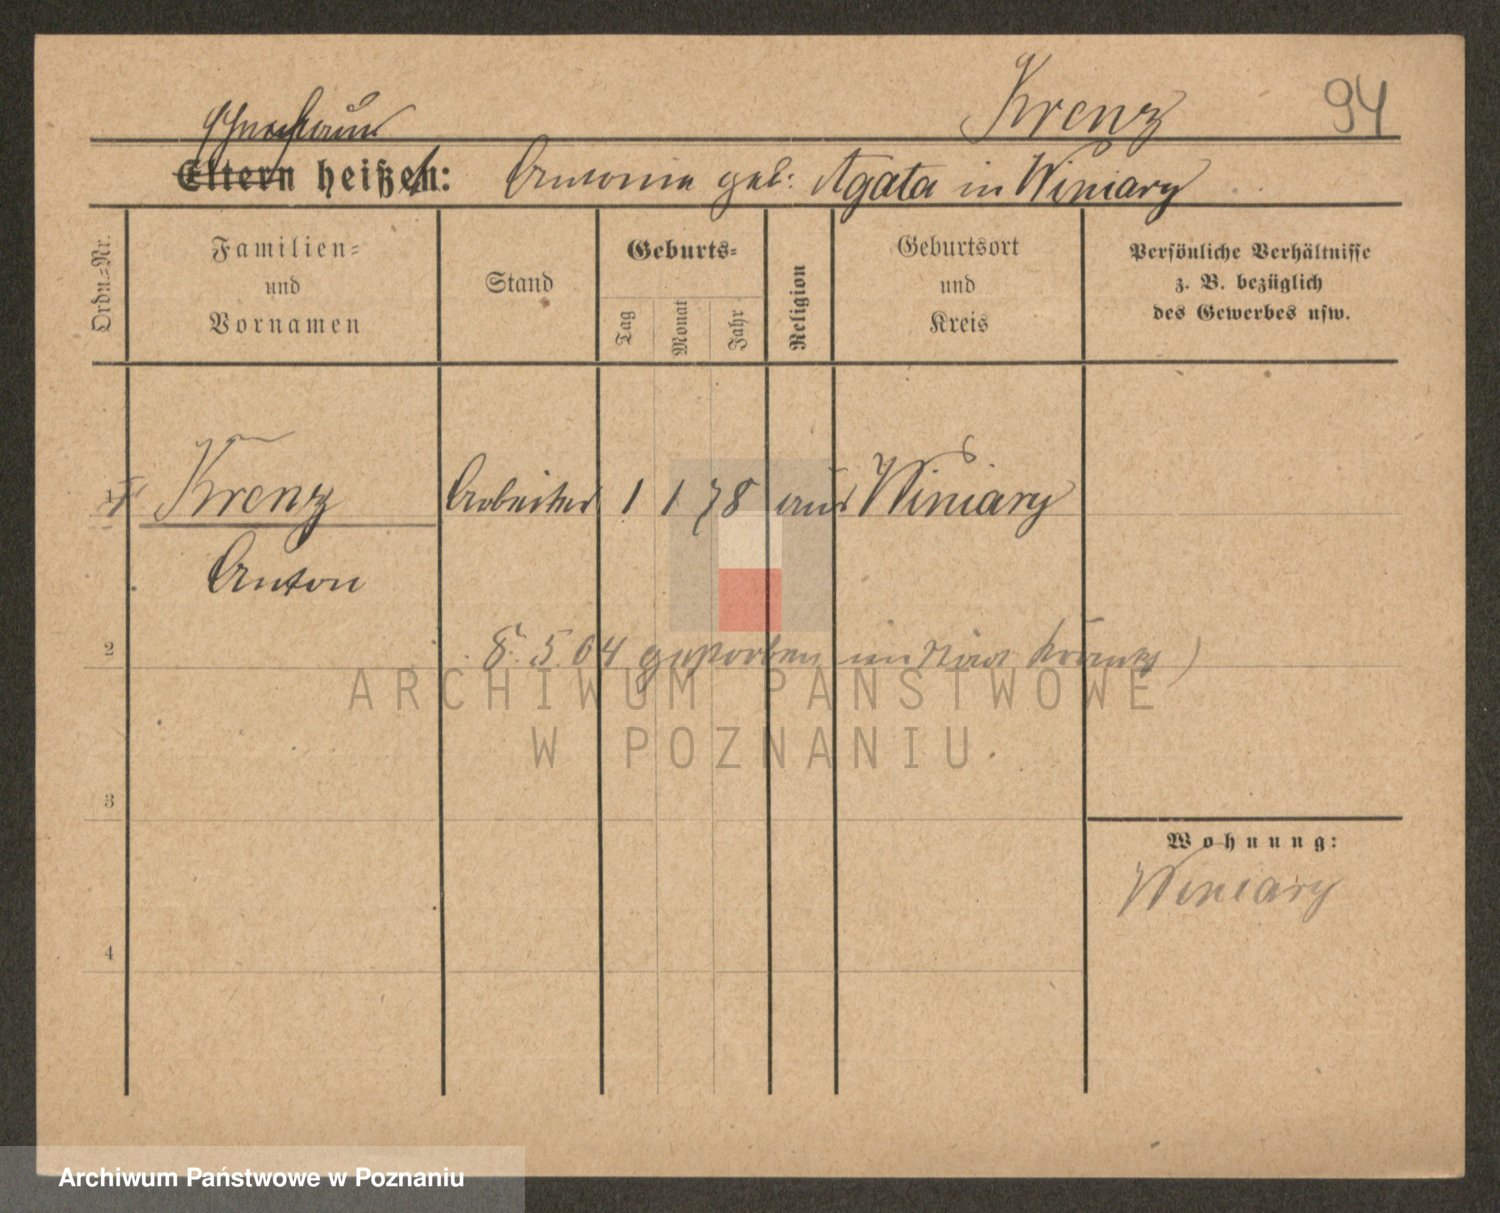 Krenz 94
Ehefrau
Eltern heißen: Antonie geb: Agata in Winiary
Ordn.=Nr.
Familien=
und
Vornamen
Stand
Geburts=
Tag
Monat
Jahr
Religion
Geburtsort
und
Kreis
Persönliche Verhältnisse
z. B. bezüglich
des Gewerbes usw.
1 Krenz Arbeiter 1 1 78 aus Winiary
Anton
2 8. 5. 04 gestorben
ARCHIWUM PAŃSTWOWE
W POZNANIU
3
Wohnung:
Winiary
4
Archiwum Państwowe w Poznaniu